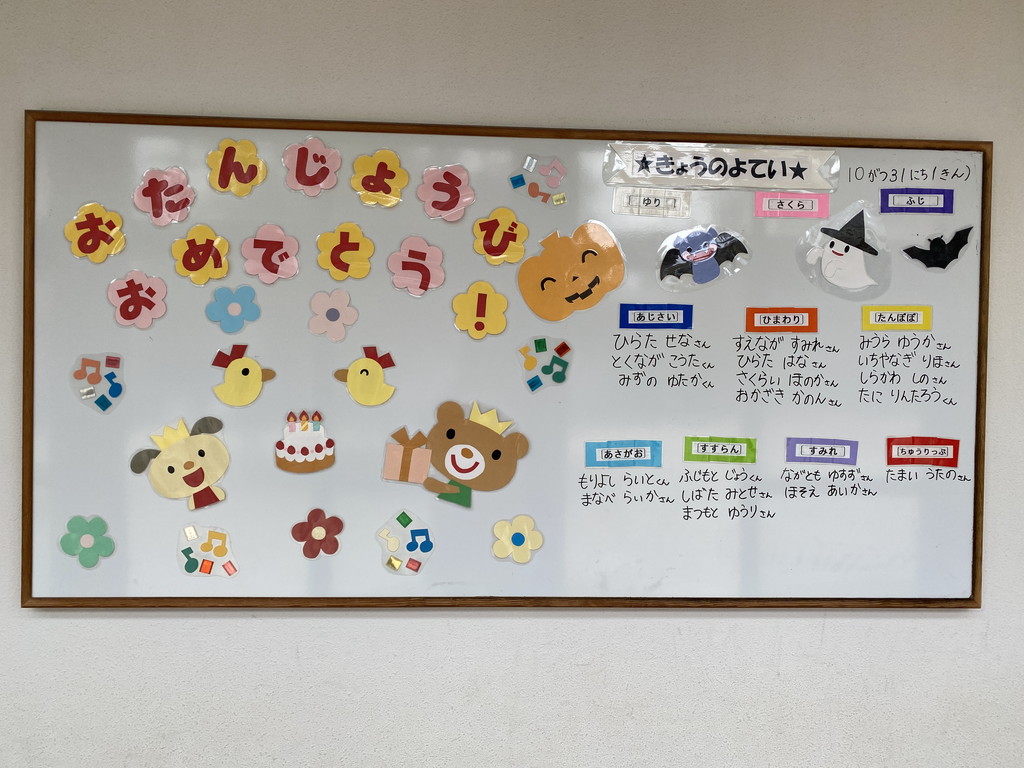 おたんじょうび
おめでとう!
★きょうのよてい★
10がつ31にち(きん)
ゆり
さくら
ふじ
あじさい
ひらた せなさん
とくなが こうたくん
みずの ゆたかくん
ひまわり
すえなが すみれさん
ひらた はなさん
さくらい ほのかさん
おかざき かのんさん
たんぽぽ
みうら ゆうかさん
いちやなぎ りほさん
しらかわ しのさん
たに りんたろうくん
あさがお
もりよし らいとくん
まなべ らいかさん
すずらん
ふじもと じょうくん
しばた みとせさん
まつもと ゆうりさん
すみれ
ながとも ゆずずさん
ほそえ あいかさん
ちゅうりっぷ
たまい うたのさん